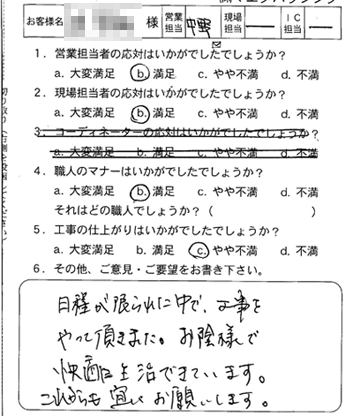 お客様名 様 営業担当 中野 現場担当 IC担当
1．営業担当者の応対はいかがでしたでしょうか？
a. 大変満足 b. 満足 c. やや不満 d. 不満
2．現場担当者の応対はいかがでしたでしょうか？
a. 大変満足 b. 満足 c. やや不満 d. 不満
3．コーディネーターの応対はいかがでしたでしょうか？
a. 大変満足 b. 満足 c. やや不満 d. 不満
4．職人のマナーはいかがでしたでしょうか？
a. 大変満足 b. 満足 c. やや不満 d. 不満
それはどの職人でしょうか？（ ）
5．工事の仕上がりはいかがでしたでしょうか？
a. 大変満足 b. 満足 c. やや不満 d. 不満
6．その他、ご意見・ご要望をお書き下さい。
日程が限られた中で、工事を
やって頂きました。お陰様で
快適に生活できています。
これからも宜しくお願いします。